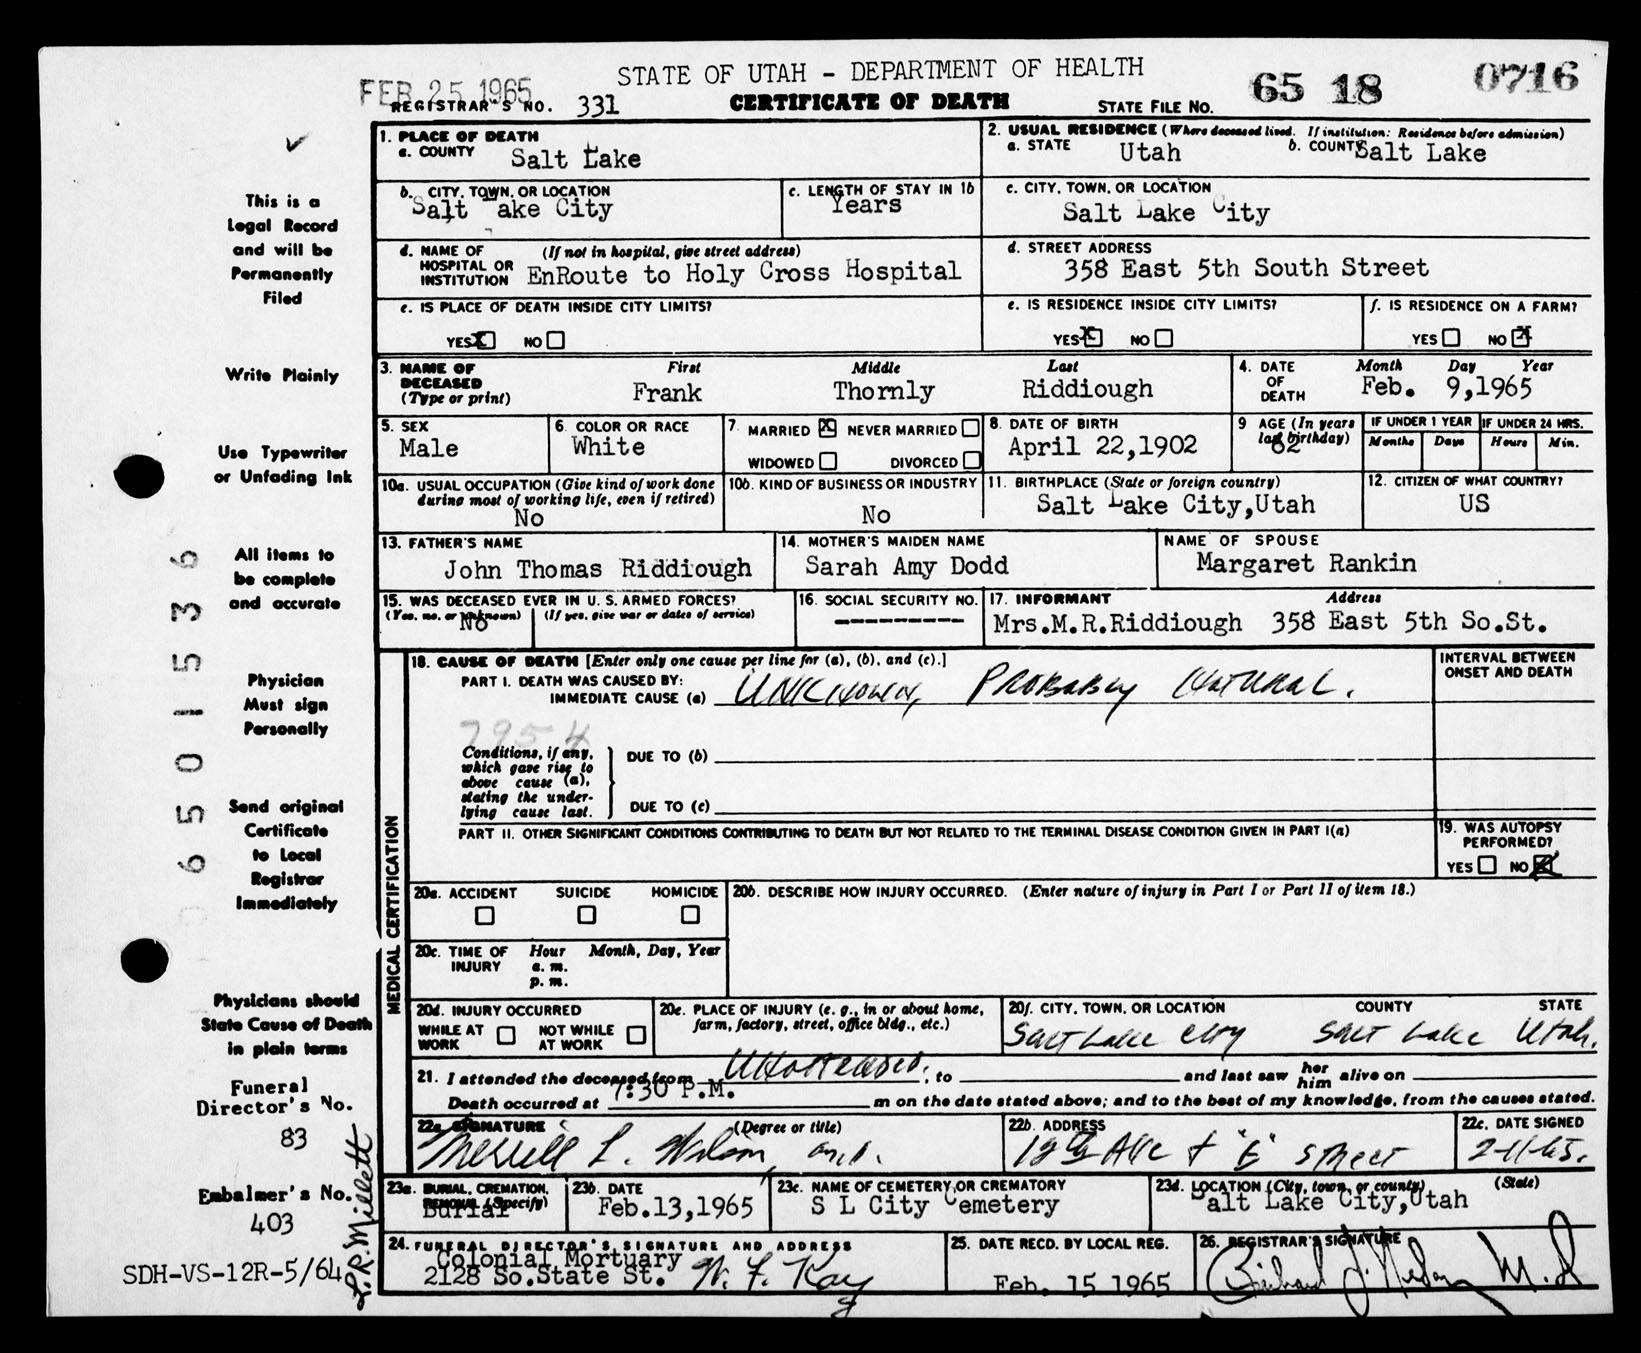 STATE OF UTAH - DEPARTMENT OF HEALTH
FEB 25 1965
REGISTRAR'S NO. 331
CERTIFICATE OF DEATH
STATE FILE NO. 65 18 0716
1. PLACE OF DEATH
a. COUNTY Salt Lake
2. USUAL RESIDENCE (Where deceased lived. If institution: Residence before admission)
a. STATE Utah b. COUNTY Salt Lake
b. CITY, TOWN, OR LOCATION
Salt Lake City
c. LENGTH OF STAY IN 1b
Years
c. CITY, TOWN, OR LOCATION
Salt Lake City
d. NAME OF HOSPITAL OR INSTITUTION (If not in hospital, give street address)
EnRoute to Holy Cross Hospital
d. STREET ADDRESS
358 East 5th South Street
e. IS PLACE OF DEATH INSIDE CITY LIMITS?
YES X NO
e. IS RESIDENCE INSIDE CITY LIMITS?
YES X NO
f. IS RESIDENCE ON A FARM?
YES NO X
3. NAME OF DECEASED (Type or print)
First Middle Last
Frank Thornly Riddiough
4. DATE OF DEATH
Month Day Year
Feb. 9,1965
5. SEX
Male
6. COLOR OR RACE
White
7. MARRIED X NEVER MARRIED
WIDOWED DIVORCED
8. DATE OF BIRTH
April 22,1902
9 AGE (In years last birthday)
62
IF UNDER 1 YEAR
Months Days
IF UNDER 24 HRS.
Hours Min.
10a. USUAL OCCUPATION (Give kind of work done
during most of working life, even if retired)
No
10b. KIND OF BUSINESS OR INDUSTRY
No
11. BIRTHPLACE (State or foreign country)
Salt Lake City,Utah
12. CITIZEN OF WHAT COUNTRY?
US
13. FATHER'S NAME
John Thomas Riddiough
14. MOTHER'S MAIDEN NAME
Sarah Amy Dodd
NAME OF SPOUSE
Margaret Rankin
15. WAS DECEASED EVER IN U. S. ARMED FORCES?
(Yes, no, or unknown) (If yes, give war or dates of service)
No
16. SOCIAL SECURITY NO.
----------
17. INFORMANT Address
Mrs.M.R.Riddiough 358 East 5th So.St.
MEDICAL CERTIFICATION
18. CAUSE OF DEATH [Enter only one cause per line for (a), (b), and (c).]
PART I. DEATH WAS CAUSED BY:
IMMEDIATE CAUSE (a) UNKNOWN, PROBABLY NATURAL.
INTERVAL BETWEEN
ONSET AND DEATH
795 4
Conditions, if any,
which gave rise to
above cause (a),
stating the under-
lying cause last.
DUE TO (b)
DUE TO (c)
PART II. OTHER SIGNIFICANT CONDITIONS CONTRIBUTING TO DEATH BUT NOT RELATED TO THE TERMINAL DISEASE CONDITION GIVEN IN PART I(a)
19. WAS AUTOPSY
PERFORMED?
YES NO X
20a. ACCIDENT SUICIDE HOMICIDE
20b. DESCRIBE HOW INJURY OCCURRED. (Enter nature of injury in Part I or Part II of item 18.)
20c. TIME OF INJURY Hour Month, Day, Year
a. m.
p. m.
20d. INJURY OCCURRED
WHILE AT WORK NOT WHILE AT WORK
20e. PLACE OF INJURY (e. g., in or about home,
farm, factory, street, office bldg., etc.)
20f. CITY, TOWN, OR LOCATION COUNTY STATE
Salt Lake City Salt Lake Utah.
21. I attended the deceased from Unattended. , to and last saw her him alive on
Death occurred at 7:30 P.M. m on the date stated above; and to the best of my knowledge, from the causes stated.
22a. SIGNATURE (Degree or title)
Merrill L. Wilson, M.D.
22b. ADDRESS
12th Ave + "E" Street
22c. DATE SIGNED
2-11-65.
23a. BURIAL, CREMATION,
REMOVAL (Specify)
Burial
23b. DATE
Feb.13,1965
23c. NAME OF CEMETERY, OR CREMATORY
S L City Cemetery
23d. LOCATION (City, town, or county) (State)
Salt Lake City,Utah
24. FUNERAL DIRECTOR'S SIGNATURE AND ADDRESS
Colonial Mortuary
2128 So.State St. W. F. Kay
25. DATE RECD. BY LOCAL REG.
Feb. 15 1965
26. REGISTRAR'S SIGNATURE
Richard J. Nelson M.D
This is a
Legal Record
and will be
Permanently
Filed
Write Plainly
Use Typewriter
or Unfading Ink
All items to
be complete
and accurate
Physician
Must sign
Personally
Send original
Certificate
to Local
Registrar
Immediately
Physicians should
State Cause of Death
in plain terms
Funeral
Director's No.
83
Embalmer's No.
403
L.R. Millett
SDH-VS-12R-5/64
06501536